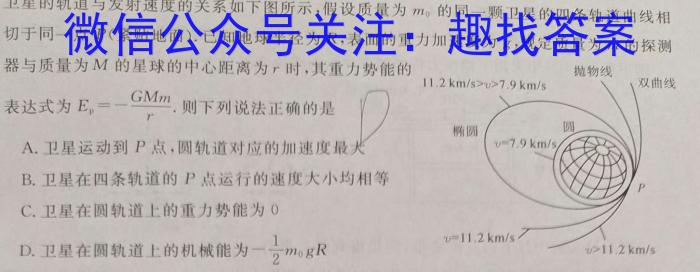 卫星的轨道与发射速度的关系如下图所示,假设质量为 m₀ 的同一颗卫星的四条轨道曲线相
切于同一
微信公众号关注:趣找答案
的探测
器与质量为M 的星球的中心距离为 r 时,其重力势能的
表达式为 Eₚ=-GMm/r. 则下列说法正确的是
A. 卫星运动到 P 点,圆轨道对应的加速度最大
B. 卫星在四条轨道的 P 点运行的速度大小均相等
C. 卫星在圆轨道上的重力势能为 0
D. 卫星在圆轨道上的机械能为-1/2 m₀gR
抛物线
双曲线
11.2 km/s>v>7.9 km/s
椭圆
圆
v=7.9 km/s
P
v=11.2 km/s
v>11.2 km/s